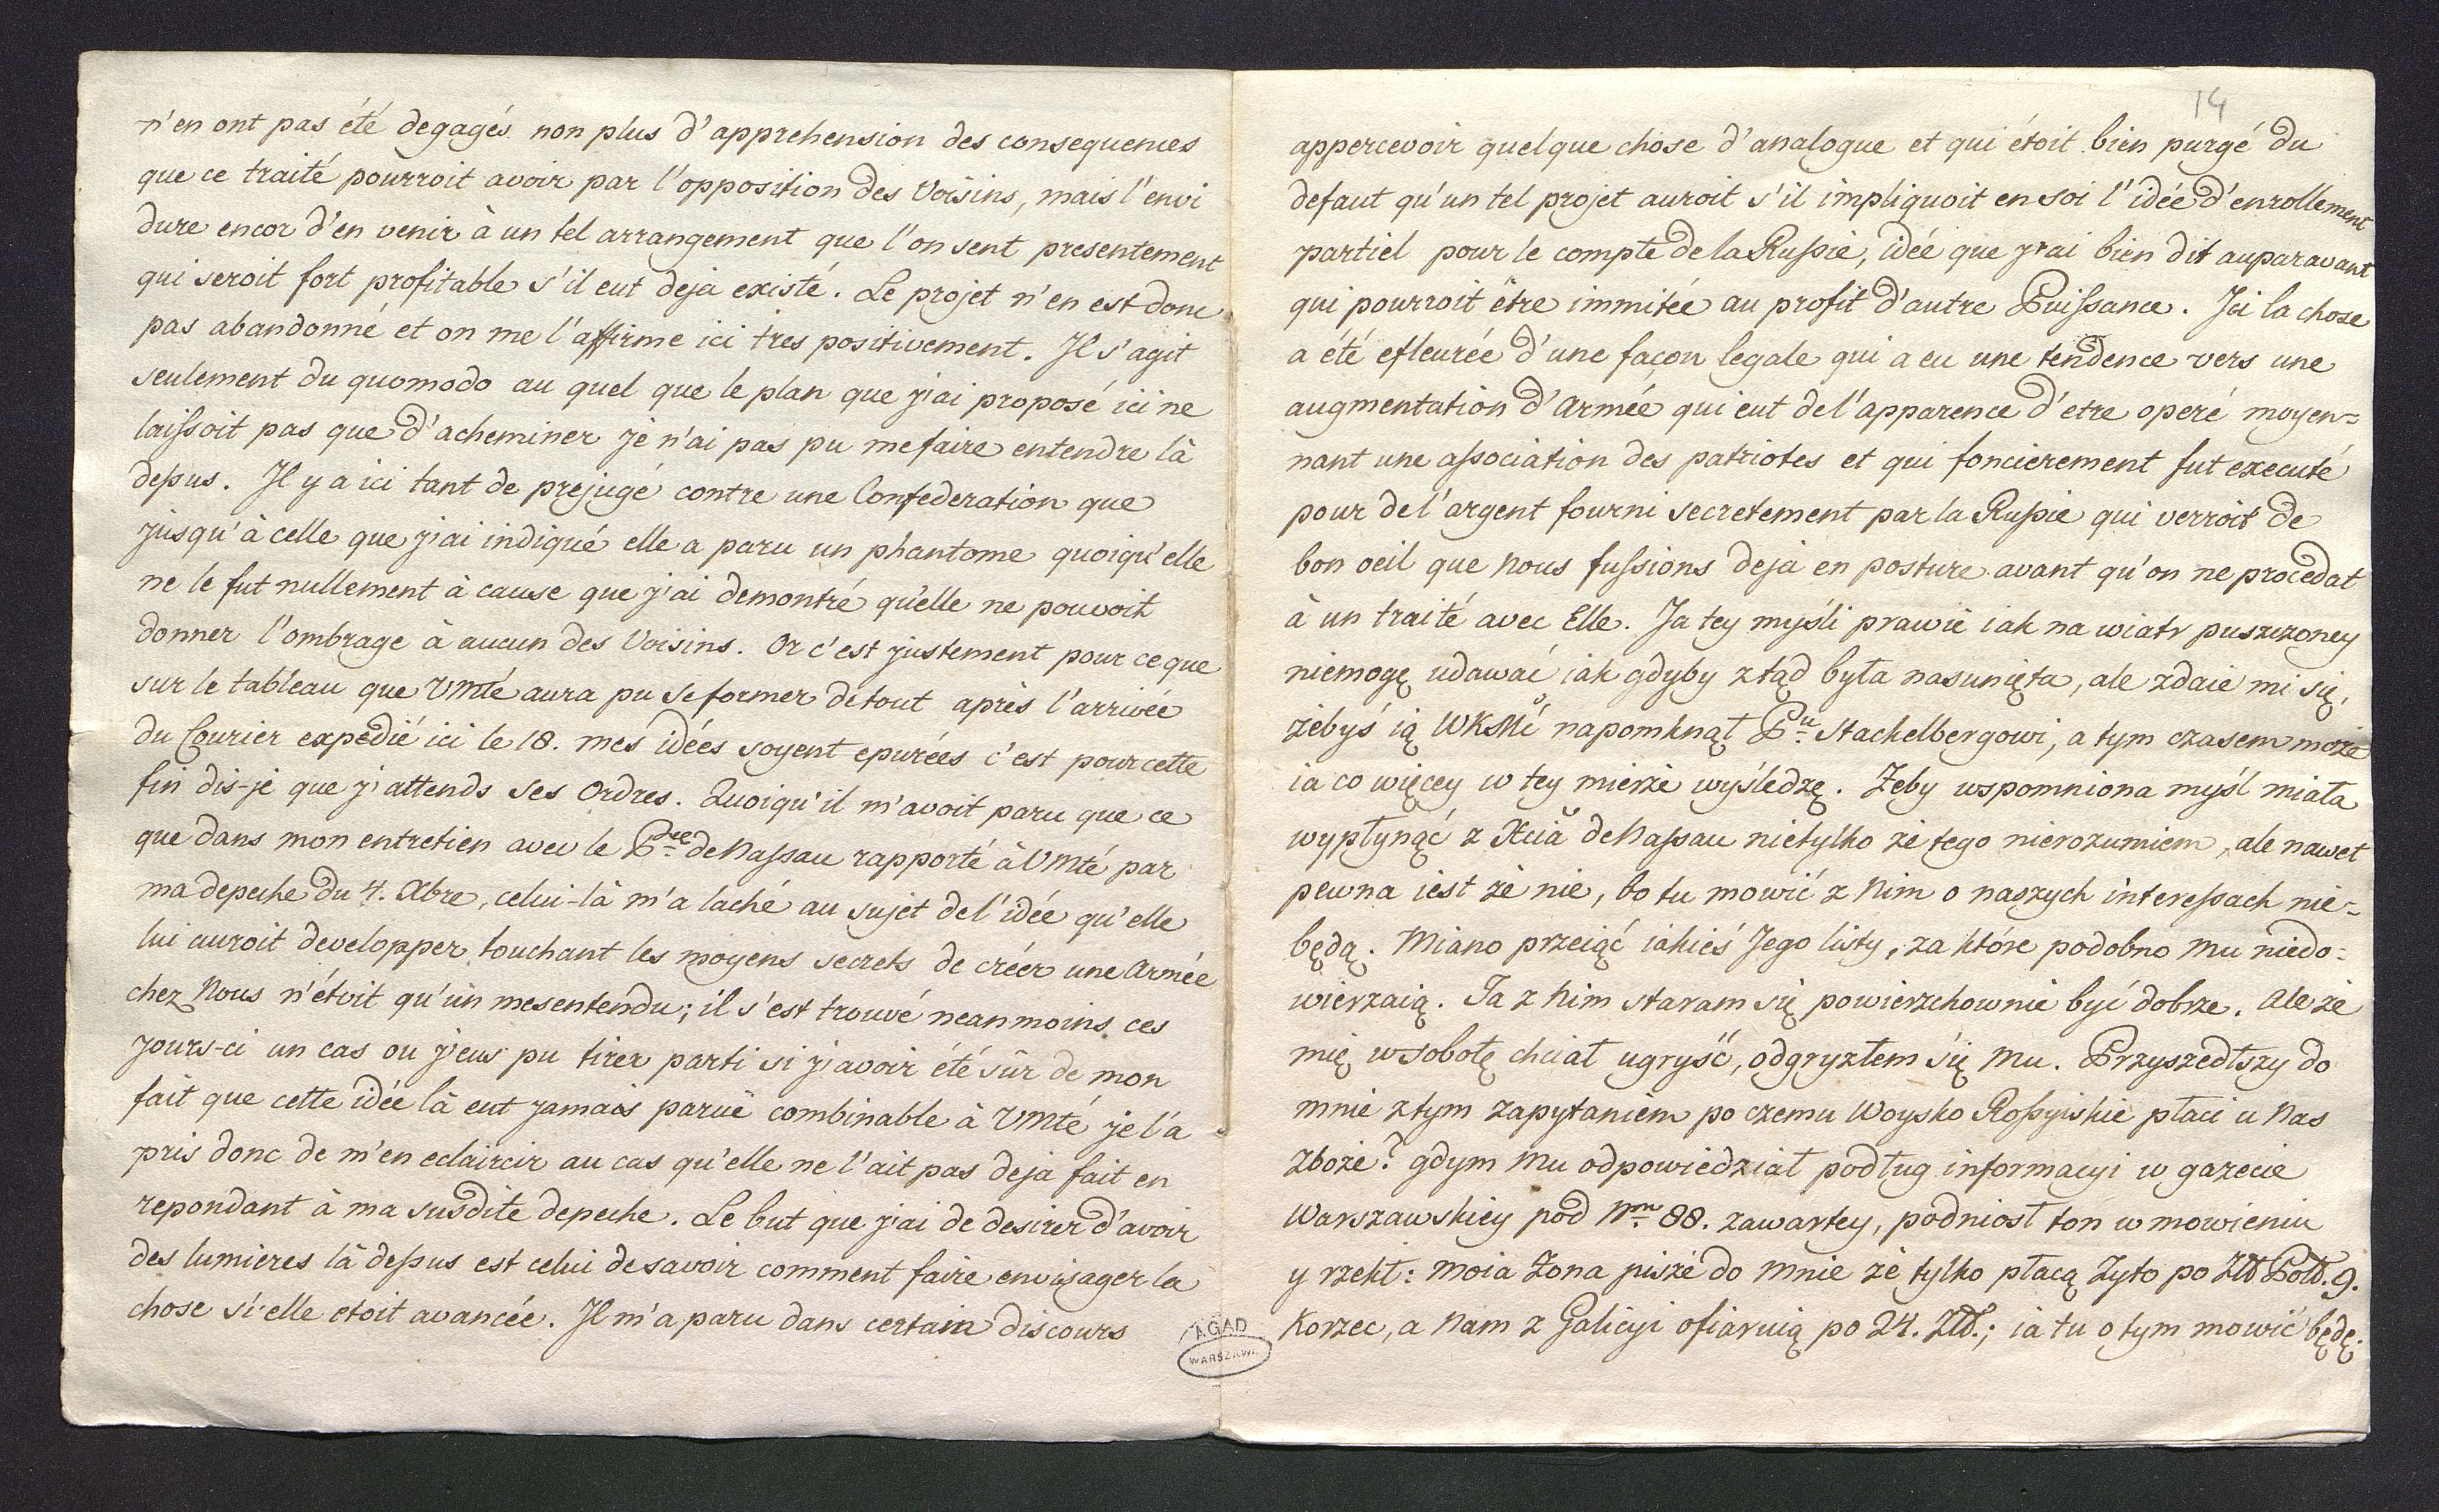 n'en ont pas été degagés non plus d'apprehension des consequences
que ce traité pourroit avoir par l'opposition des Voisins, mais l'envi
dure encor d'en venir à un tel arrangement que l'on sent presentement
qui seroit fort profitable s'il eut deja existé. Le projet n'en est donc
pas abandonné et on me l'affirme ici tres positivement. Il s'agit
seulement du quomodo au quel que le plan que j'ai proposé ici ne
laissoit pas que d'acheminer je n'ai pas pu me faire entendre là
dessus. Il y a ici tant de prejugé contre une Confederation que
jusqu'à celle que j'ai indiqué elle a paru un phantome quoiqu'elle
ne le fut nullement à cause que j'ai demontré qu'elle ne pouvoit
donner l'ombrage à aucun des Voisins. Or c'est justement pour ce que
sur le tableau que VMté aura pu se former de tout après l'arrivée
du Courier expedié ici le 18. mes idées soyent epurées c'est pour cette
fin dis-je que j'attends ses Ordres. Quoiqu'il m'avoit paru que ce
que dans mon entretien avec le Pce de Nassau rapporté à VMté par
ma depeche du 4. Xbre, celui-là m'a laché au sujet de l'idée qu'elle
lui auroit developper touchant les moyens secrets de créer une Armée
chez Nous n'étoit qu'un mesentendu; il s'est trouvé neanmoins ces
jours-ci un cas ou j'eus pu tirer parti si j'avoir été sûr de mon
fait que cette idée là eut jamais paruë combinable à VMté je l'a
pris donc de m'en eclaircir au cas qu'elle ne l'ait pas deja fait en
repondant à ma susdite depeche. Le but que j'ai de desirer d'avoir
des lumieres là dessus est celui de savoir comment faire envisager la
chose si elle etoit avancée. Il m'a paru dans certain discours
AGAD
WARSZAWA
14
appercevoir quelque chose d'analogue et qui étoit bien purgé du
defaut qu'un tel projet auroit s'il impliquoit en soi l'idée d'enrollement
partiel pour le compte de la Russie, idée que j'ai bien dit auparavant
qui pourroit être immitée au profit d'autre Puissance. Ici la chose
a été efleurée d'une façon legale qui a eu une tendence vers une
augmentation d'Armée qui eut de l'apparence d'etre operé moyen=
nant une association des patriotes et qui foncierement fut executé
pour de l'argent fourni secretement par la Russie qui verroit de
bon oeil que Nous fussions deja en posture avant qu'on ne procedat
à un traité avec Elle. Ja tey myśli prawie iak na wiatr puszczoney
niemogę udawać iak gdyby ztąd była nasunięta, ale zdaie mi się,
żebyś ią WKMć napomknął Pu Stackelbergowi, a tym czasem może
ia co więcey w tey mierze wyśledzę. Żeby wspomniona myśl miała
wypłynąć z Xcia de Nassau nietylko że tego nierozumiem, ale nawet
pewna iest że nie, bo tu mowić z Nim o naszych interessach nie=
będą. Miano przeiąć iakieś Jego listy, za które podobno Mu niedo=
wierzaią. Ja z Nim staram się powierzchownie być dobrze. Ale że
mię w sobotę chciał ugryść, odgryzłem się Mu. Przyszedłszy do
mnie z tym zapytaniem po czemu Woysko Rossyiskie płaci u Nas
Zboże? gdym Mu odpowiedział podług informacyi w gazecie
Warszawskiey pod Nrm 88. zawartey, podniosł ton w mowieniu
y rzekł: Moia Żona pisze do mnie że tylko płacą Żyto po Złł Poll. 9.
Korzec, a Nam z Galicyi ofiaruią po 24. Złł.; ia tu o tym mowić będę.